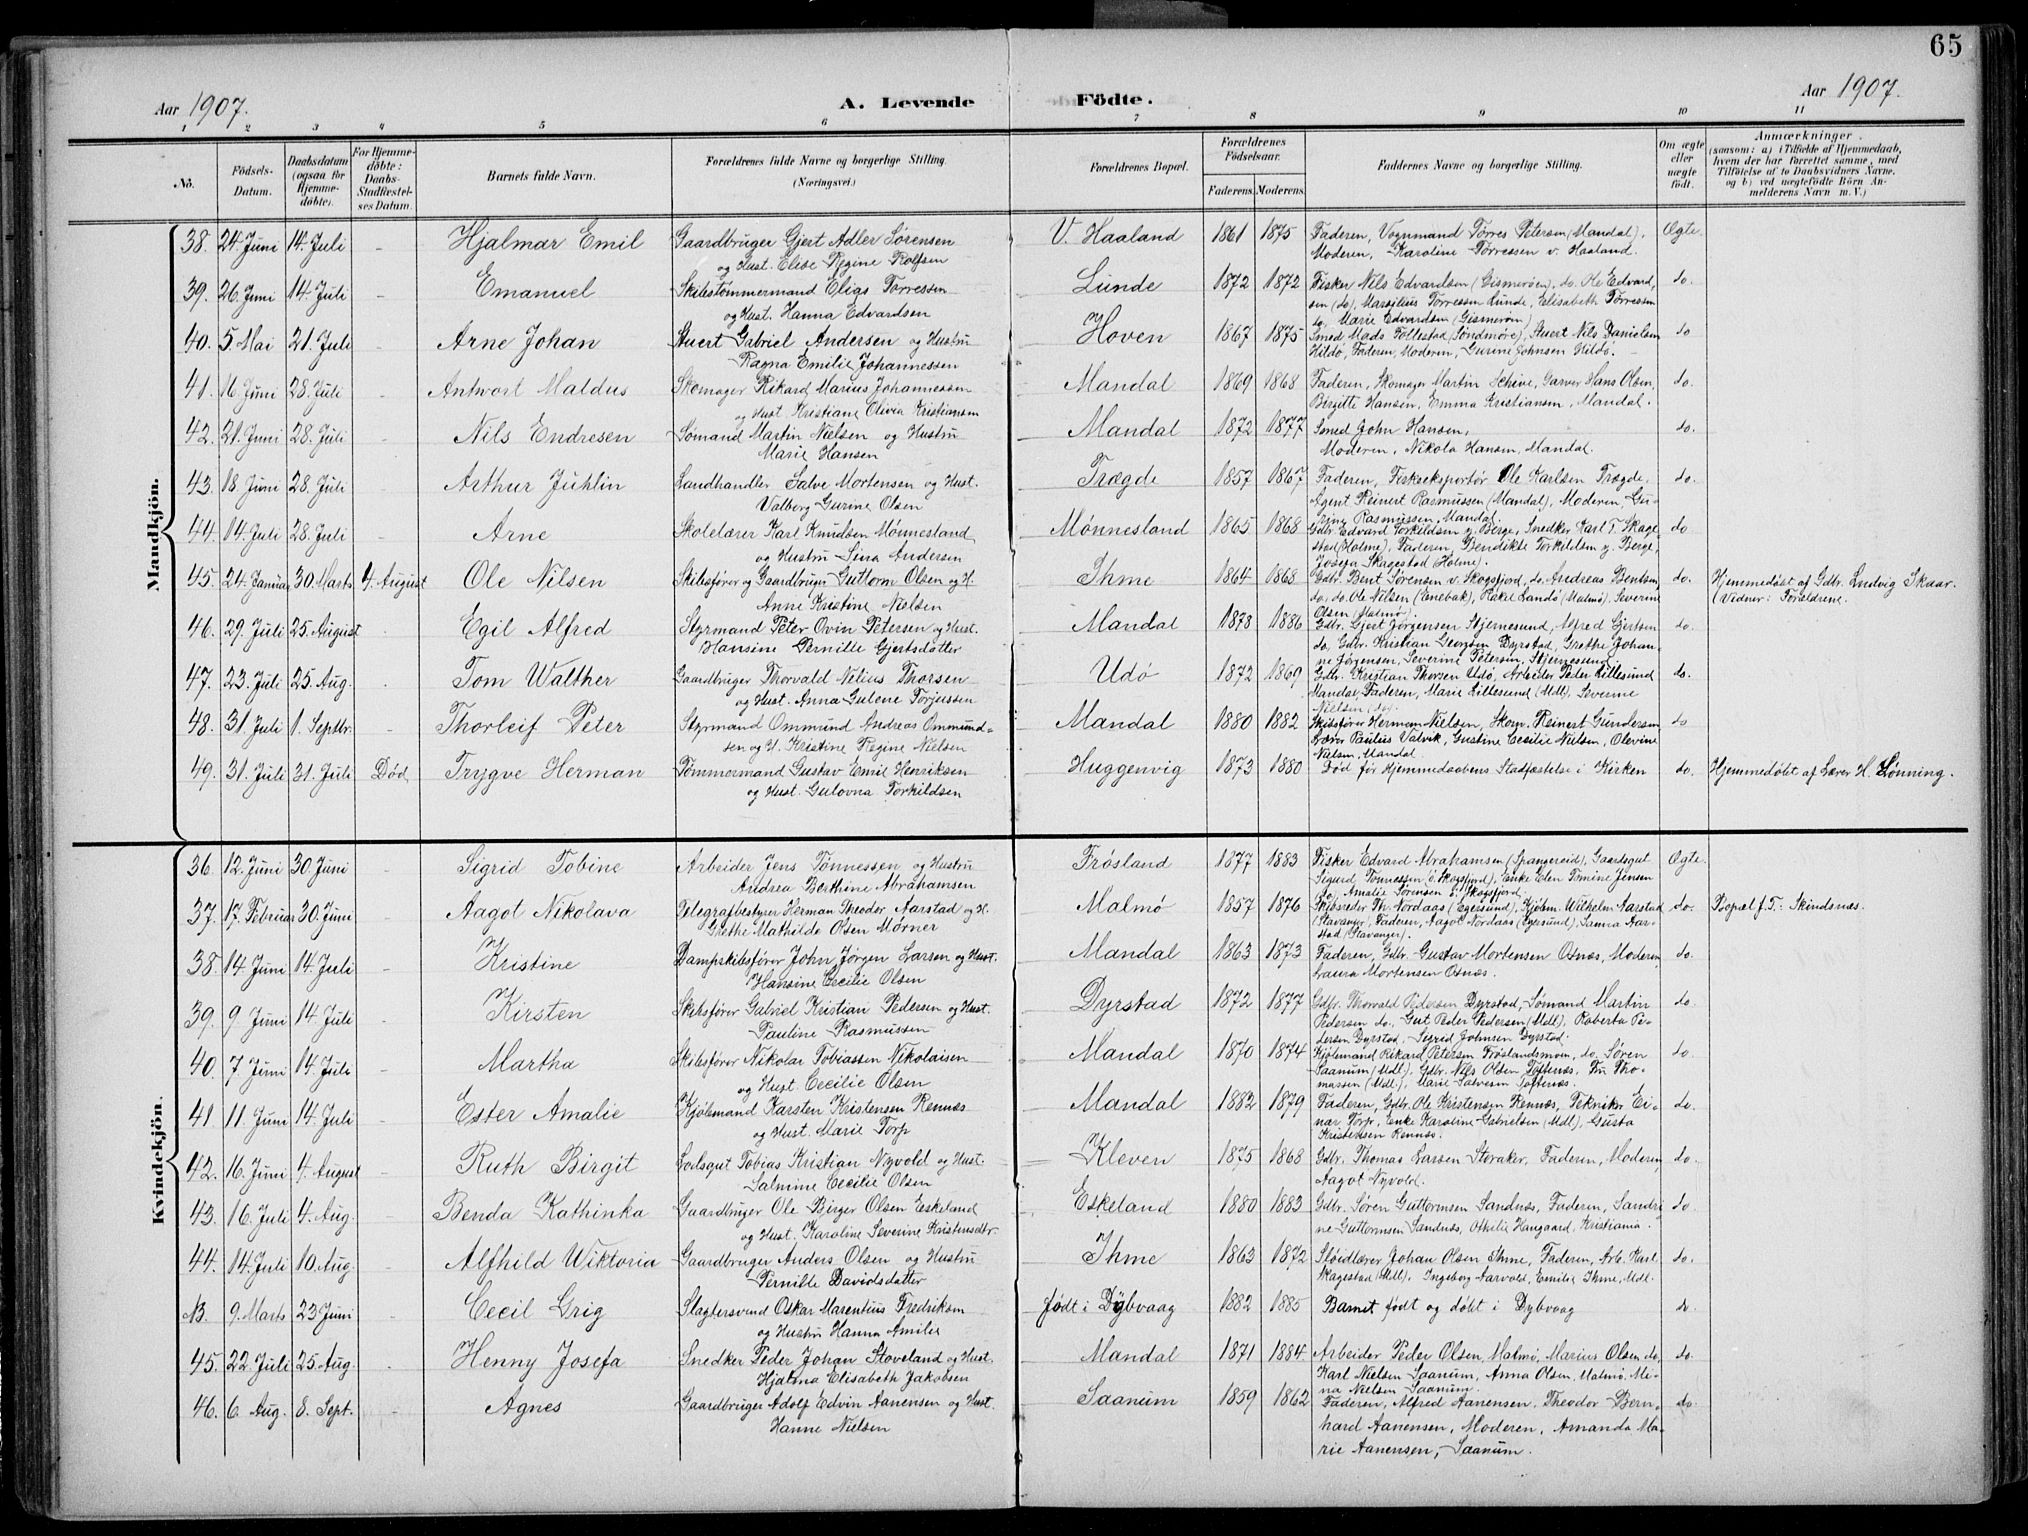 65
Aar 1907.
A. Levende Födte.
Aar 1907.
1 2 3 4 5 6 7 8 9 10 11
No.
Födsels-Datum.
Daabsdatum (ogsaa for Hjemme-döbte).
For Hjemme-döbte: Daabs-Stadfæstel-ses Datum.
Barnets fulde Navn.
Forældrenes fulde Navne og borgerlige Stilling. (Næringsvei.)
Forældrenes Bopæl.
Forældrenes Födselsaar.
Faderens. Moderens.
Faddernes Navne og borgerlige Stilling.
Om ægte eller uægte födt.
Anmærkninger.
(saasom: a) i Tilfælde af Hjemmedaab, hvem der har forrettet samme, med Tilföielse af to Daabsvidners Navne, og b) ved uægtefödte Börn An-melderens Navn m. V.)
Mandkjön.
38. 24 Juni 14. Juli - Hjalmar Emil Gaardbruger Gjert Adler Sørensen V. Haaland 1861 1875 Faderen, Vognmand Torres Petersen (Mandal). Ægte.
og Hust. Elise Regine Rolfsen Moderen, Karoline Torressen v. Haaland.
39. 26 Juni 14 Juli - Emanuel Skibstømmermand Elias Torressen Lunde 1872 1872 Fisker Nils Edvardsen (Gismerøen), do. Ole Edvard- do.
og Hust. Hanna Edvardsen sen (do), Marsilius Torressen Lunde, Elisabeth Torressen
do, Marie Edvardsen (Gismerøen)
40. 5 Mai 21. Juli Arne Johan Stuert Gabriel Andersen og Hustru Hoven 1867 1875 Smed Mads Tollestad (Søndmøre), Stuert Nils Danielsen do
Ragna Emilie Johannessen Hildø, Faderen, Moderen, Gurine Johnsen Hildø.
41. 16 Juni 28 Juli - Antwort Maldus Skomager Rikard Marius Johannessen Mandal 1869 1868 Faderen, Skomager Martin Schive, Garver Hans Olsen, do.
og Hust Kristiane Olivia Kristiansen Bergitte Hansen, Emma Kristiansen, Mandal.
42. 21 Juni 28. Juli Nils Endresen Sømand Martin Nielsen og Hustru Mandal 1872 1877 Smed John Hansen, do.
Marie Hansen Moderen, Nikola Hansen, Mandal.
43. 18 Juni 28. Juli Arthur Juhlin Landhandler Salve Mortensen og Hust. Trægde 1857 1867 Faderen, Fiskeeksportør Ole Karlsen Trægde, do.
Valborg Gurine Olsen Agent Reinert Rasmussen (Mandal), Moderen, Gu-
rine Rasmussen, Mandal.
44. 14 Juli 28. Juli Arne Skolelærer Karl Knudsen Mønnesland Mønnesland 1865 1868 Gdbr. Edvard Torkildsen y. Berge, Snedker Karl T. Skage- do
og Hustru Sina Andersen stad (Holme), Faderen, Bendikte Torkildsen y. Berge,
Josefa Skagestad (Holme).
45. 24 Januar 30. Marts 4. August Ole Nilsen Skibsfører og Gaardbruger Guttorm Olsen og H. Ihme 1864 1868 Gdbr. Bent Sørensen v. Skogsfjord, do. Andreas Bentsen do. Hjemmedøbt af Gdbr. Ludvig Skaar.
Anne Kristine Nielsen do, do. Ole Nilsen (Enebak), Rakel Landø (Malmø), Severine (Vidner: Forældrene.
Olsen (Malmø)
46. 29. Juli 25. August Egil Alfred Styrmand Peter Ovin Petersen og Hust. Mandal 1878 1886 Gdbr. Gjert Jørgensen Stjernesund, Alfred Gjertsen do.
Hansine Pernille Gjertsdatter do, Gdbr. Kristian Georgsen Dyrstad, Grethe Johan-
ne Jørgensen, Severine Petersen, Stjernesund.
47. 23. Juli 25 Aug. Tom Walther Gaardbruger Thorvald Nelius Thorsen Udø 1872 1869 Gdbr. Kristian Thorsen Udø, Arbeider Peder Lillesund do.
og Hust. Anna Gulene Torjussen Mandal, Faderen, Marie Lillesund (Mdl), Severine
Nielsen (do).
48. 31 Juli 1. Septbr. Thorleif Peter Styrmand Ommund Andreas Ommund- Mandal 1880 1882 Skibsfører Herman Nielsen, Skom. Reinert Gundersen do
sen og H. Kristine Regine Nielsen Lærer Paulius Valvik, Gustine Cecilie Nielsen, Olevine
Nielsen, Mandal
49. 31 Juli 31 Juli Død Trygve Herman Tømmermand Gustav Emil Henriksen Huggenvig 1873 1880 Død før Hjemmedaabens Stadfæstelse i Kirken do. Hjemmedøbt af Lærer H. Lønning.
og Hust. Gulovna Torkildsen
Kvindekjön.
36. 12. Juni 30. Juni Sigrid Tobine Arbeider Jens Tønnessen og Hustru Frøsland 1877 1883 Fisker Edvard Abrahamsen (Spangereid), Gaardsgut Ægte
Andrea Berthine Abrahamsen Sigurd Tønnessen (ö. Skogsfjord), Enke Elen Tomine Jensen
og Amalie Sørensen ö. Skogsfjord.
37. 17. Februar 30. Juni Aagot Nikolava Telegrafbestyrer Herman Theodor Aarstad og H. Malmø 1857 1876 Skibsreder Th. Nordaas (Egersund), Kjøbm. Wilhelm Aarstad do. Bopæl f. T.: Skindsnæs.
Grethe Mathilde Olsen Mørner (Stavanger), Faderen, Aagot Nordaas (Egersund), Sanna Aar-
stad (Stavanger).
38 14 Juni 14. Juli Kristine Dampskibsfører John Jørgen Larsen og Hust. Mandal 1863 1873 Faderen, Gdbr. Gustav Mortensen Osnæs, Moderen do.
Hansine Cecilie Olsen Laura Mortensen Osnæs.
39. 9 Juni 14. Juli Kirsten Skibsfører Gabriel Kristian Pedersen og Hust. Dyrstad 1872 1877 Gdbr. Thorvald Pedersen Dyrstad, Sømand Martin do.
Pauline Rasmussen Pedersen do. Gut Peder Pedersen (Mdl), Roberta Pe-
dersen Dyrstad, Sigrid Johnsen Dyrstad.
40. 7. Juni 14. Juli Martha Skibsfører Nikolai Tobiassen Nikolaisen Mandal 1870 1874 Kjøbmand Rikard Petersen Frøslandsmoen, do. Søren do.
og Hust. Cecilie Olsen Saanum (Mdl), Gdbr. Nils Olsen Toftenes, Fru Tho-
massen (Mdl), Marie Salvesen Toftenæs.
41 11 Juni 14. Juli Ester Amalie Kjøbmand Karsten Kristensen Rennæs Mandal 1882 1879 Faderen, Gdbr. Ole Kristensen Rennæs, Tekniker Ei- do.
og Hust. Marie Torp nar Torp, Enke Karoline Gabrielsen (Mdl), Gusta
Kristensen Rennæs.
42. 16. Juni 4. August Ruth Birgit Lodsgut Tobias Kristian Nyvold og Hust. Kleven 1875 1868 Gdbr. Thomas Larsen Storaker, Faderen, Moderen, do.
Salmine Cecilie Olsen Aagot Nyvold.
43. 16 Juli 4. Aug. Benda Kathinka Gaardbruger Ole Birger Olsen Eskeland Eskeland 1880 1883 Gdbr. Søren Guttormsen Sandnæs, Faderen, Sandri- do.
og Hust. Karoline Severine Kristensdtr. ne Guttormsen Sandnæs, Othilie Haugaard, Kristiania.
44. 14 Juli 10 Aug. Alfhild Wiktoria Gaardbruger Anders Olsen og Hustru Ihme 1863 1872 Sløidlærer Johan Olsen Ihme, Faderen, Arb. Karl do.
Pernille Davidsdatter Skagestad (Mdl). Ingeborg Aarvold, Emilie Ihme, Mdl.
NB. 9. Marts 23 Juni Cecil Grig Slagtersvend Oskar Marentius Fredriksen født i Dybvaag 1882 1885 Barnet født og døbt i Dybvaag do.
og Hustru Hanna Amilie
45. 22. Juli 25. Aug. Henny Josefa Snedker Peder Johan Stoveland og Hust. Mandal 1871 1884 Arbeider Peder Olsen, Malmø, Marius Olsen do, do.
Hjalma Elisabeth Jakobsen Karl Nielsen Saanum, Anna Olsen, Malmø, Me-
na Nielsen Saanum.
46. 6. Aug. 8. Sept. Agnes Gaardbruger Adolf Edvin Aanensen og Hust. Saanum 1859 1862 Faderen, Alfred Aanensen, Theodor Bern- do.
Hanne Nielsen hard Aanensen, Moderen, Amanda Ma-
rie Aanensen, Saanum.